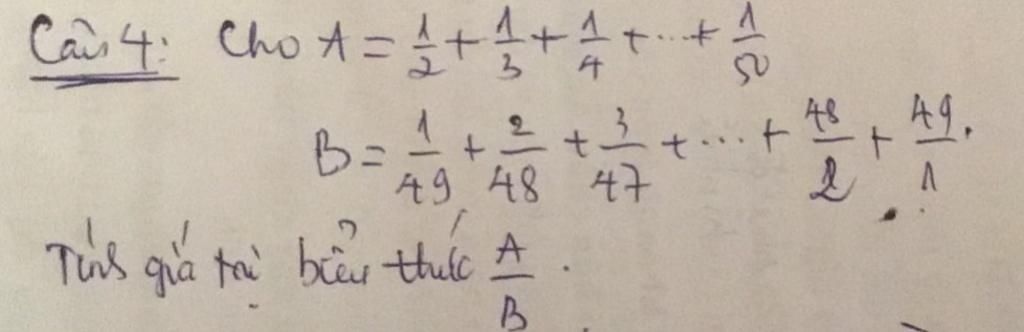 Câu 4: Cho A = 1/2 + 1/3 + 1/4 + ... + 1/50
B = 1/49 + 2/48 + 3/47 + ... + 48/2 + 49/1.
Tính giá trị biểu thức A/B.